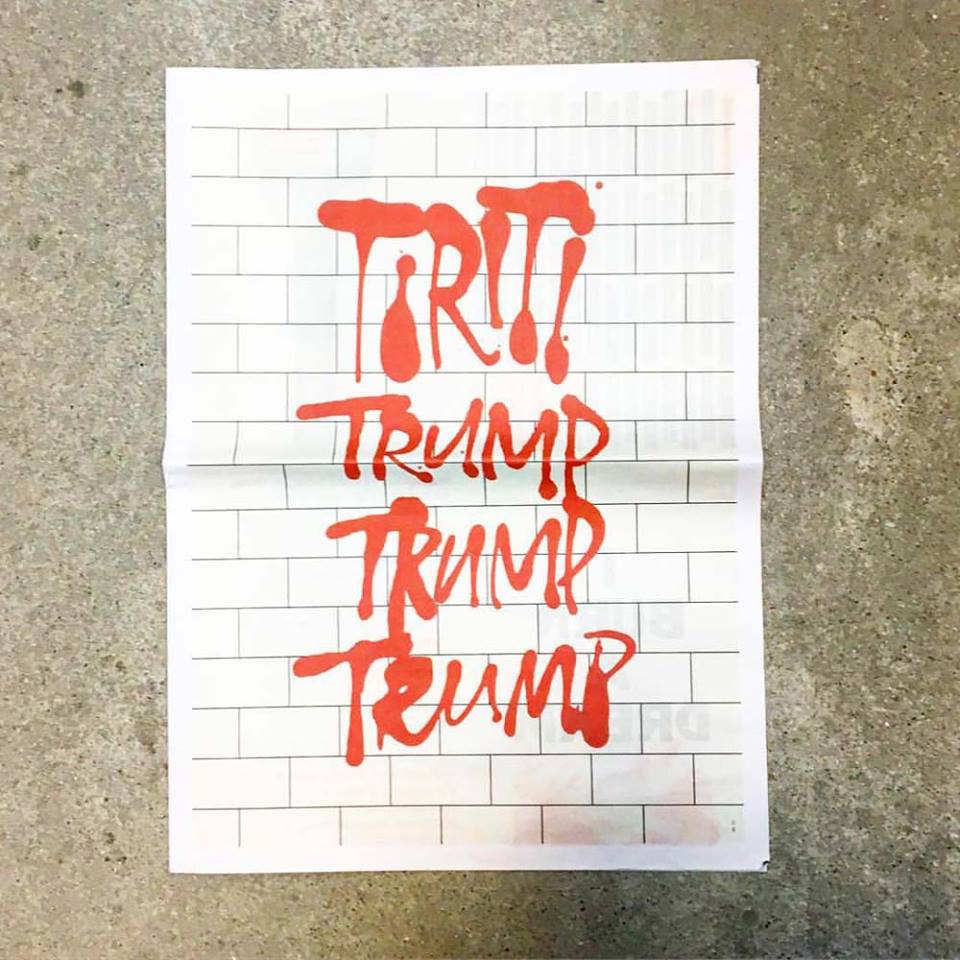 TiRITi
TRUMP
TRUMP
TRUMP